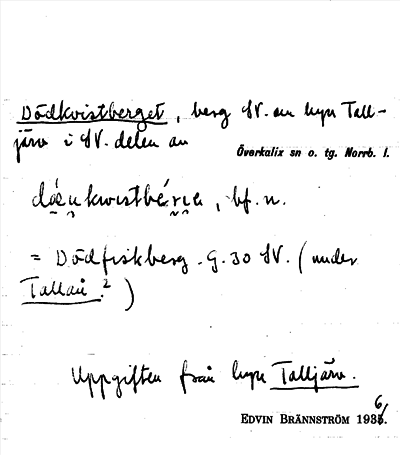 Dödkvistberget, berg SV. om byn Tall-
järv i SV. delen av
Överkalix sn o. tg. Norrb. l.
bf. n.
= Dödfiskberg. G. 30 SV. (under
Tallån.²)
Uppgiften från byn Talljärv.
EDVIN BRÄNNSTRÖM 1936.